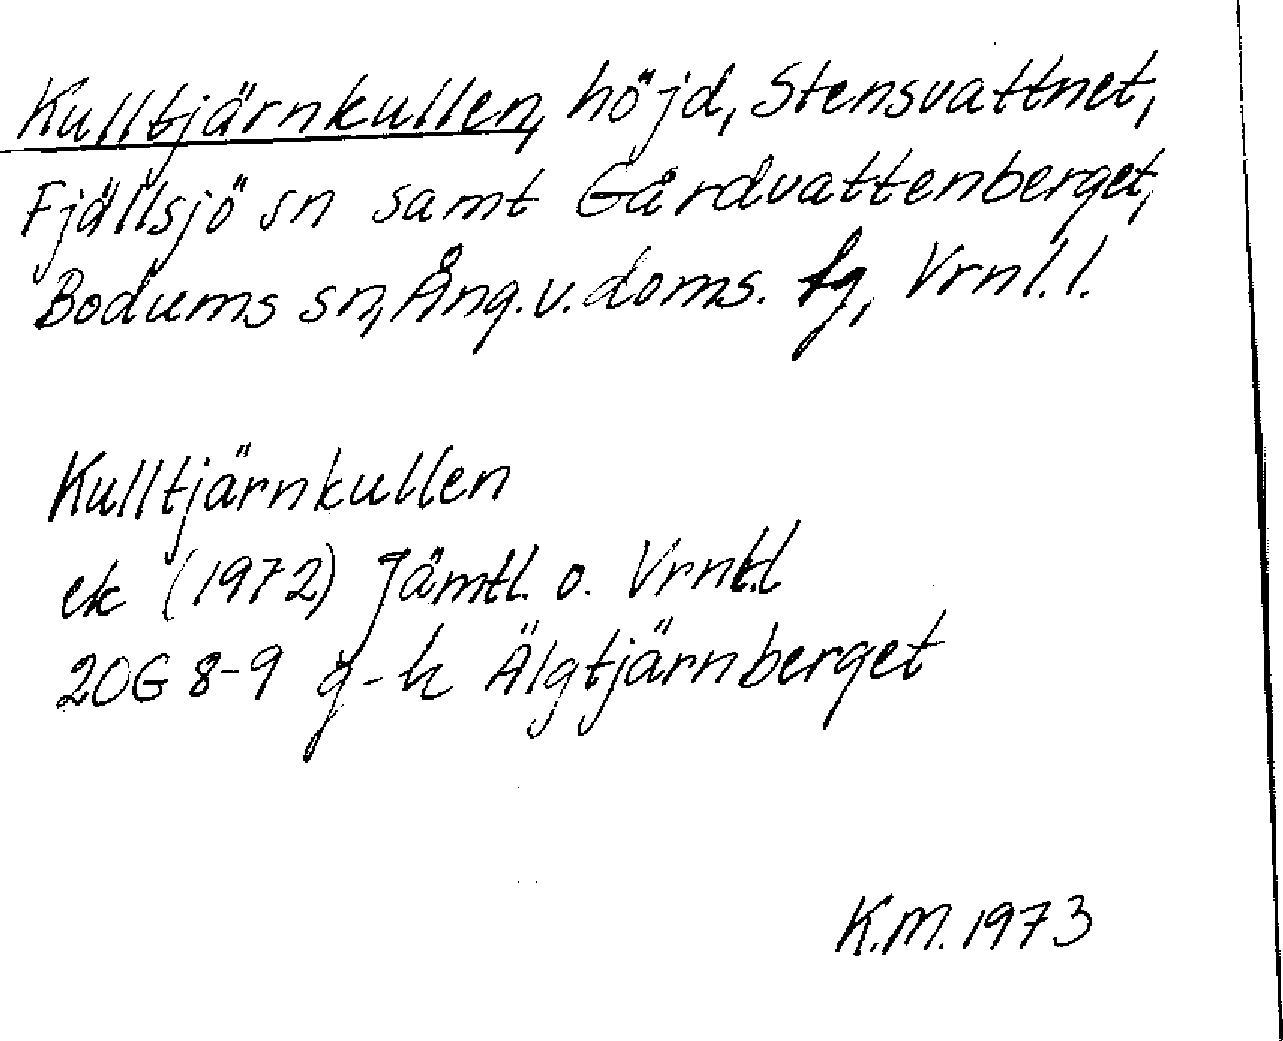 Kulltjärnkullen, höjd, Stensvattnet,
Fjällsjö sn samt Gårdvattenberget,
Bodums sn, Ång. v. doms. fg, Vrnl.l.
Kulltjärnkullen
ek (1972) Jämtl. o. Vrnl.l
20G 8-9 g-h Älgtjärnberget
K.M. 1973